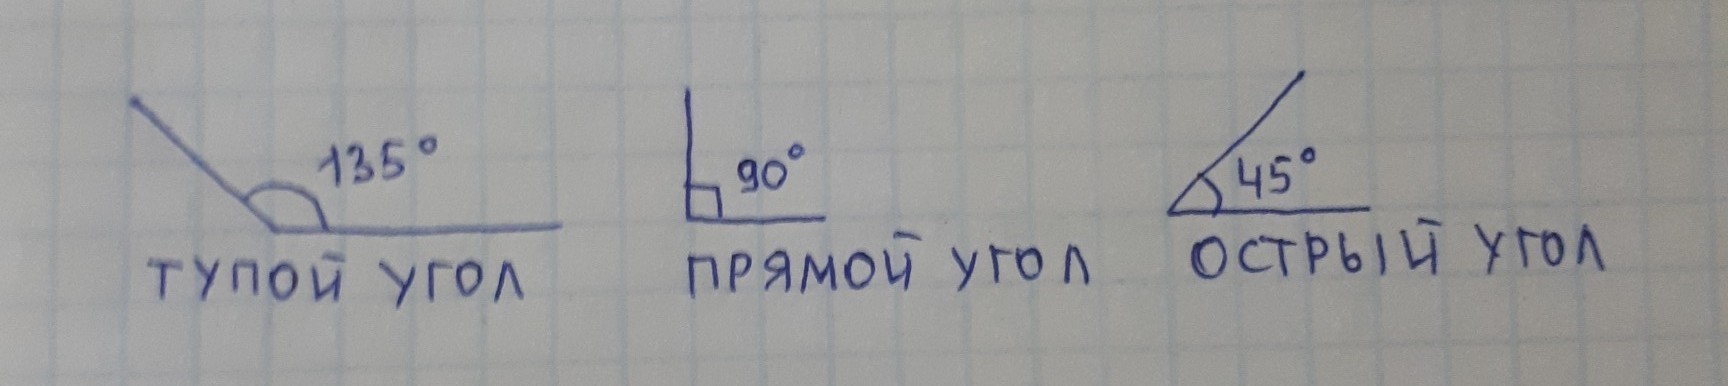 135° 90° 45°
ТУПОЙ УГОЛ ПРЯМОЙ УГОЛ ОСТРЫЙ УГОЛ